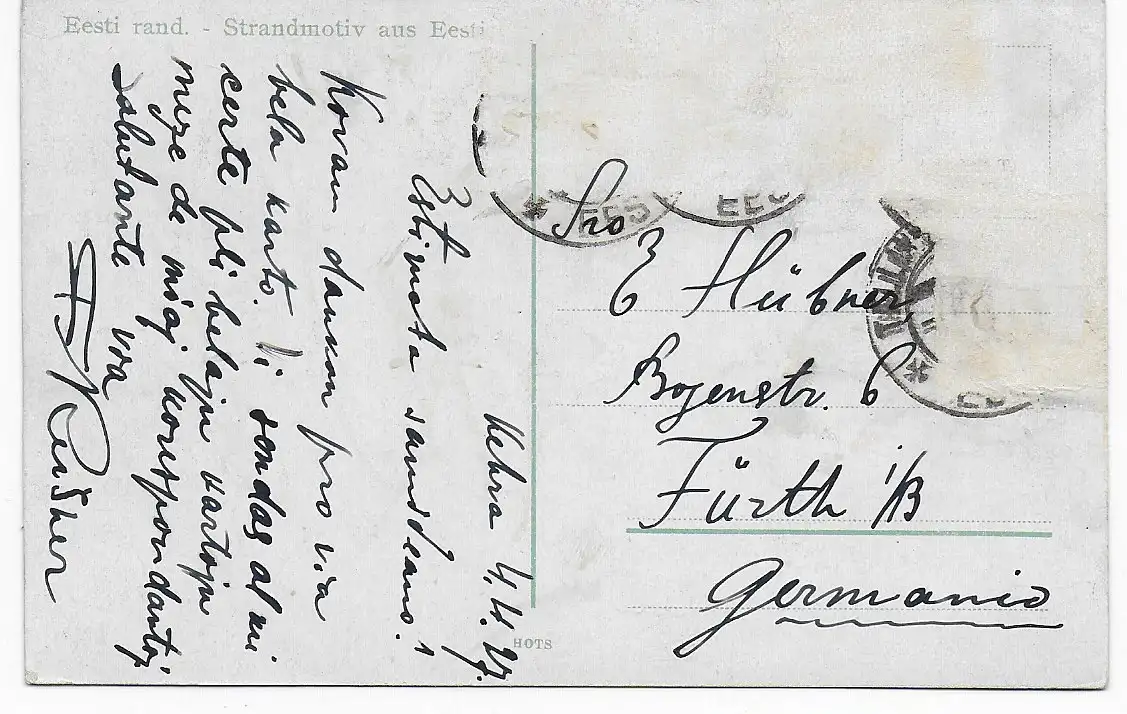 Eesti rand. - Strandmotiv aus Eesti
Kehra 4. 27.
Estimata samideano!
Koran dankon pro via
bela karto. Vi sendas al mi
certe pli belajn kartojn
de miaj korespondantoj,
Salutante via
EES
EES
TALLINN
Sro
E Hübner,
Bogenstr. 6
Fürth i/B
Germanio
HOTS